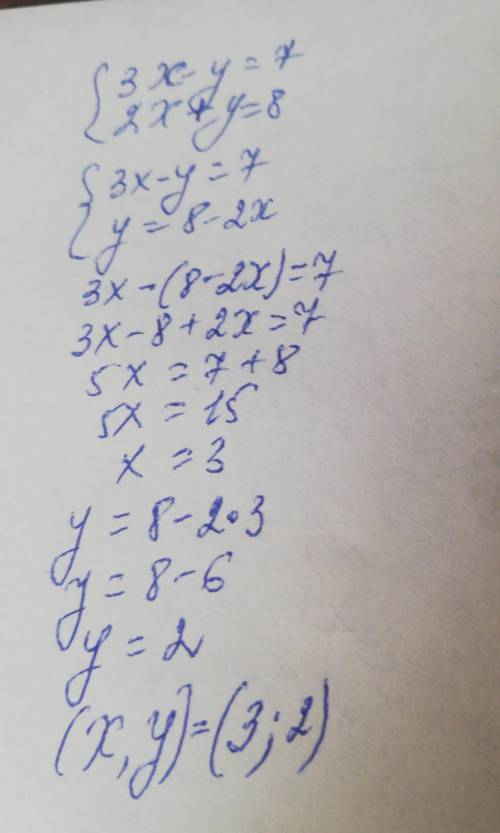 { 3x - y = 7
2x + y = 8
{ 3x - y = 7
y = 8 - 2x
3x - (8 - 2x) = 7
3x - 8 + 2x = 7
5x = 7 + 8
5x = 15
x = 3
y = 8 - 2 · 3
y = 8 - 6
y = 2
(x, y) = (3; 2)